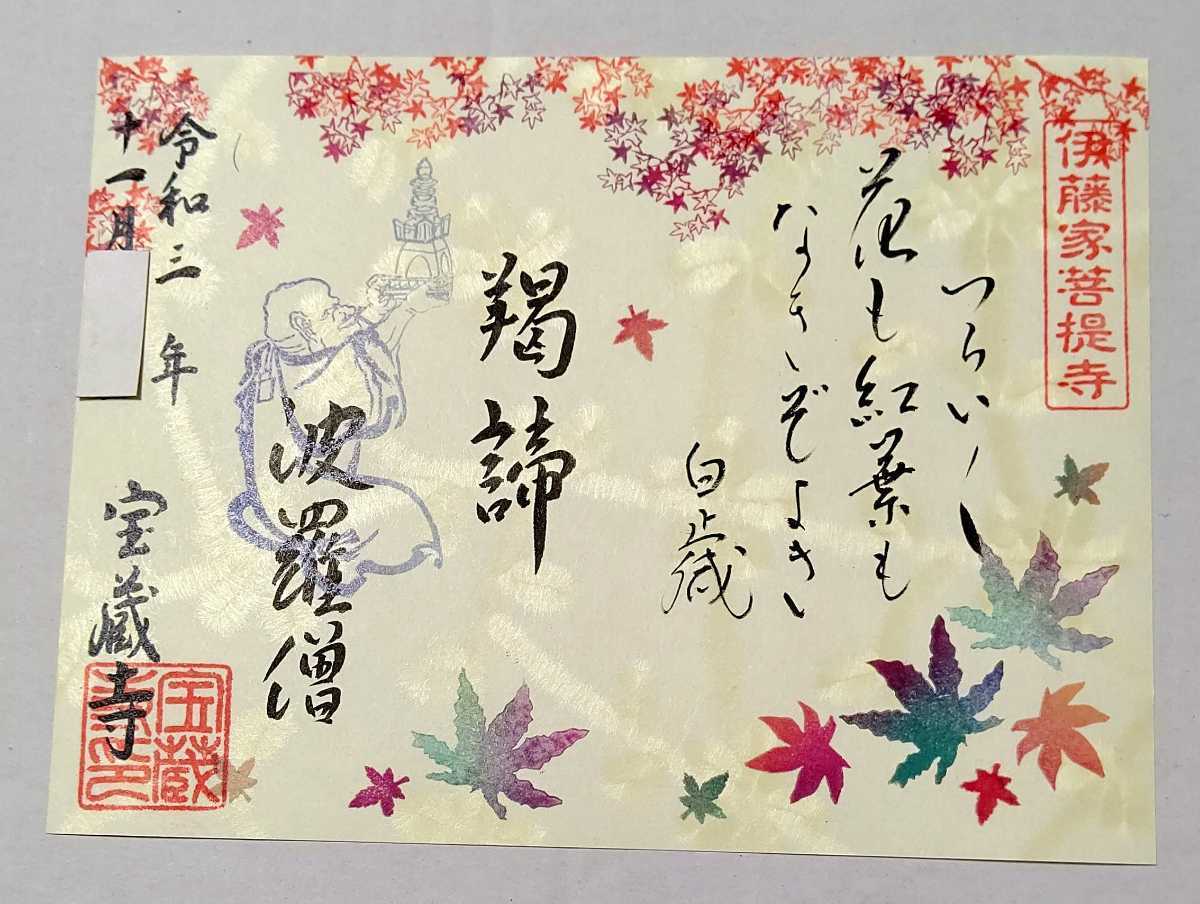 伊藤家菩提寺
花も紅葉も
なきぞよき
白歳
羯諦
波羅僧
令和三年
十一月
宝蔵寺
宝蔵寺印